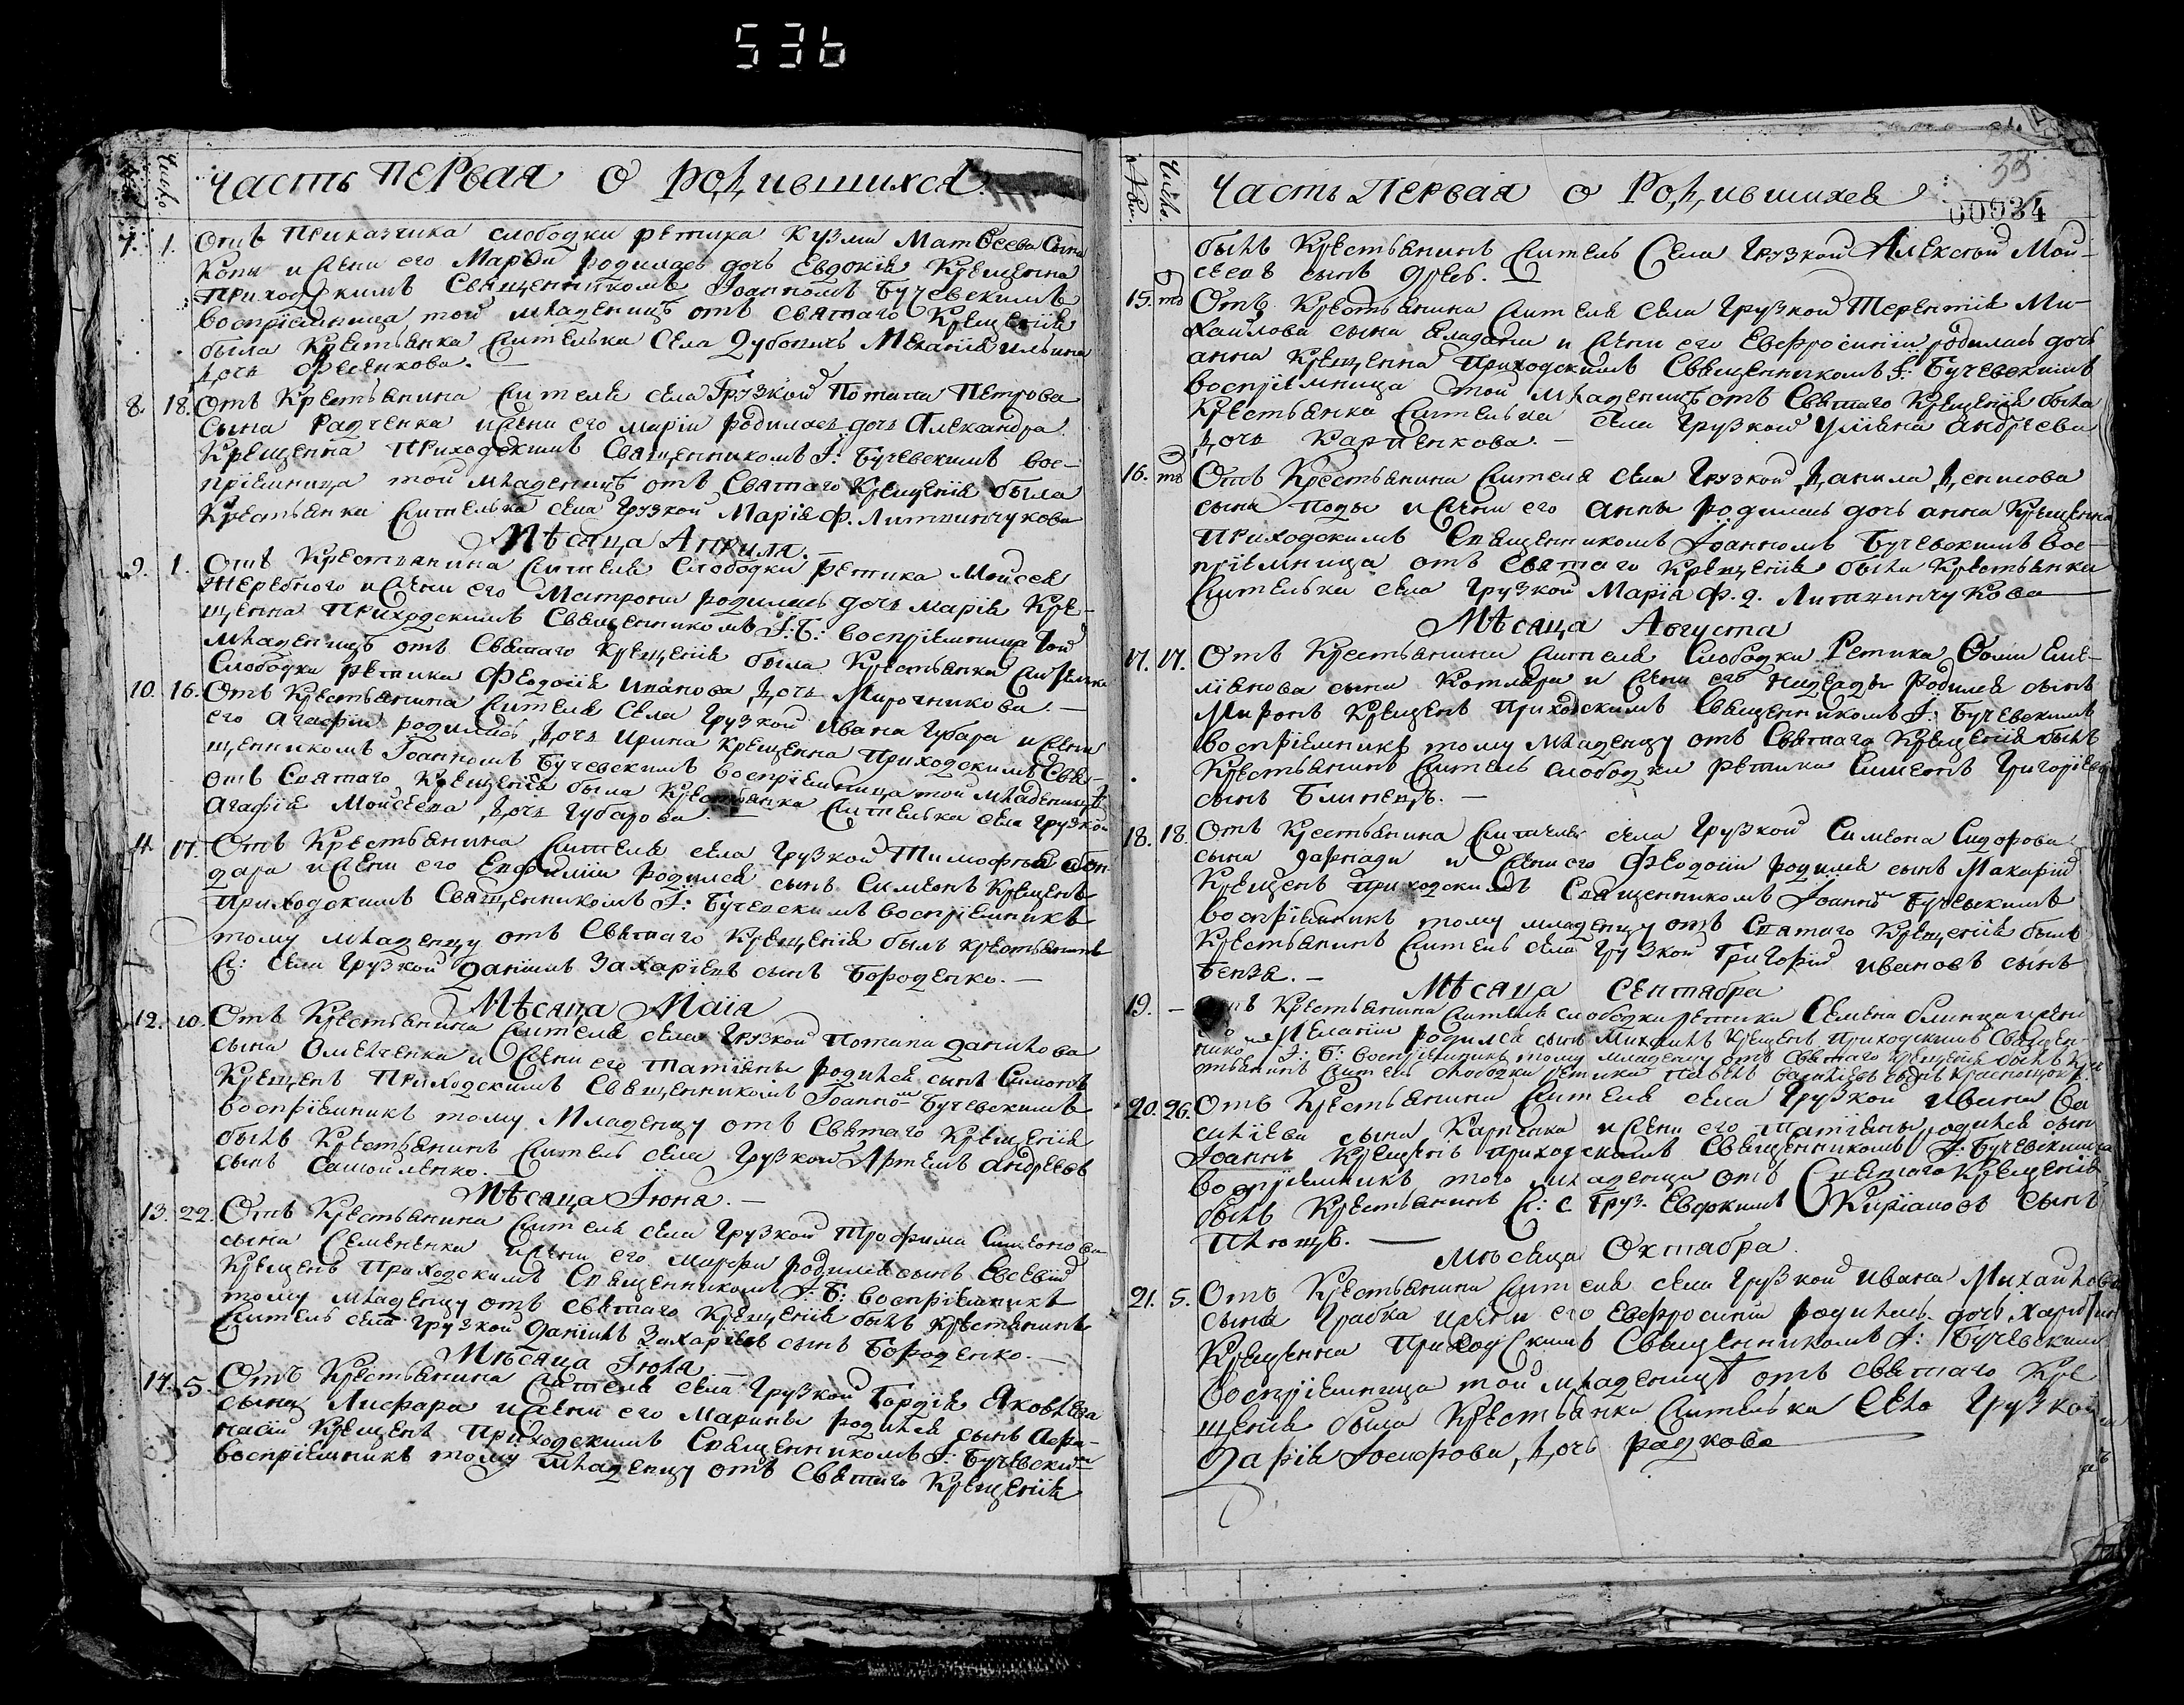 536
Число
Часть первая о родившихся
7. 1. Отъ приказчика слободки ретика Кузми Матѳеева сына
Копы и жены его Марѳи родилась дочь Евдокія Крещенна
приходскимъ Священникомъ Іоанномъ Бучевскимъ
воспріемница той младеницѣ отъ святаго Крещенія
была крестьянка жителька села Дубовичъ Меланія Ильина
дочь Фесенкова. —
8. 18. Отъ Крестьянина жителя села Грузкой Потапа Петрова
сына Радченка и жены его маріи родилась дочь Александра
Крещенна приходскимъ Священникомъ І: Бучевскимъ вос-
пріемница той младеницѣ отъ Святаго Крещенія была
Крестьянка жителька села Грузкой Марія Ф. Литвинчукова
Мѣсяца Априля. —
9. 1. Отъ Крестьянина жителя Слободки ретика Моисея
Жеребного и жены его Матроны родилась дочь Марія Кре-
щенна приходскимъ Священникомъ І: Б: воспріемница той
младеницѣ отъ Святаго Крещенія была Крестьянка жителька
Слободки ретика Феодосія Иванова дочь Мирочникова. —
10. 16. Отъ Крестьянина жителя Села Грузкой Ивана Губара и жены
его Агафіи родилась дочь Ирина Крещенна приходскимъ Свя-
щенникомъ Іоанномъ Бучевскимъ воспріемница той младеницѣ
отъ Святаго Крещенія была крестьянка жителька села Грузкой
Агафія Мойсеева дочь Губарова. —
11. 17. Отъ Крестьянина жителя села Грузкой Тимофѣя Бон
дара и жены его Евфиміи родился сынъ Симеонъ Крещенъ
приходскимъ Священникомъ І: Бучевскимъ воспріемникъ
тому младенцу отъ Святаго Крещенія былъ крестьянинъ
ж: села Грузкой Даніилъ Захаріевъ сынъ Бороденко. —
Мѣсяца Маія
12. 10. Отъ Крестьянина жителя села Грузкой Потапа Данилова
сына Омелченка и жены его Татіяны родился сынъ Симонъ
Крещенъ приходскимъ Священникомъ Іоанномъ Бучевскимъ
воспріемникъ тому Младенцу отъ Святаго Крещенія
былъ Крестьянинъ житель села Грузкой Артемъ Андреевъ
сынъ Самойленко. —
Мѣсяца Іюня. —
13. 22. Отъ Крестьянина жителя села Грузкой Трофима Симеонова
сына Семененка и жены его Марфы родился сынъ Евсевій
Крещенъ приходскимъ Священникомъ І: Б: воспріемникъ
тому младенцу отъ святаго Крещенія былъ крестянинъ
житель села Грузкой Даніилъ Захаріевъ сынъ Бороденко. —
Мѣсяца Іюля
14. 5. Отъ Крестьянина жителя села Грузкой Гордія Яковлева
сына Лисфара и жены его Марины родился сынъ Афа-
насій Крещенъ приходскимъ Священникомъ І: Бучевскимъ
воспріемникъ тому младенцу отъ Святаго Крещенія
Число.
Часть Первая о Родившихся
00034
былъ Крестьянинъ житель Села Грузкой Алексѣй Мой-
сеевъ сынъ
15. Отъ Крестьянина жителя села Грузкой Терентія Ми-
хайлова сына и жены его Евфросиніи родилась дочь
анна Крещенна Приходскимъ Священникомъ І: Бучевскимъ
воспріемница той младеницѣ отъ Святаго Крещенія была
Крестьянка жителька села Грузкой Уліяна андреева
дочь Карпенкова. —
16. Отъ Крестьянина жителя села Грузкой Данила Денисова
сына и жены его анны родилась дочь анна Крещенна
приходскимъ Священникомъ Іоанномъ Бучевскимъ вос-
пріемница отъ Святаго Крещенія была Крестьянка
жителька села Грузкой Марія Ф. д. Литвинчукова
Мѣсяца Августа
17. 17. Отъ Крестьянина жителя Слободки Ретика Ѳомы Еме-
ліянова сына Котляра и жены его Надежды родился сынъ
Миронъ Крещенъ Приходскимъ Священникомъ І: Бучевскимъ
воспріемникъ тому младенцу отъ Святаго Крещенія былъ
Крестьянинъ житель слободки ретика Симеонъ Григоріевъ
сынъ Блинецъ. —
18. 18. Отъ Крестьянина жителя села Грузкой Симеона Сидорова
сына и жены его Феодосіи родился сынъ Макарій
Крещенъ приходскимъ Священникомъ Іоанномъ Бучевскимъ
воспріемникъ тому младенцу отъ Святаго Крещенія былъ
Крестьянинъ житель села Грузкой Григорій Ивановъ сынъ
Бензя. —
Мѣсяца Сентября
19. — Отъ Крестьянина жителя слободки ретика Семена Блинца и жены
его Меланіи родился сынъ Михаилъ Крещенъ приходскимъ Священ-
нико І: Б: воспріемникъ тому младенцу отъ Святаго Крещенія былъ Кре-
стьянинъ житель слободки ретики Павелъ сынъ
20. 26. Отъ Крестьянина жителя села Грузкой Ивана Ва
силіева сына Карпенка и жены его Татіяны родился сынъ
Іоаннъ Крещенъ приходскимъ Священникомъ І: Бучевскимъ
воспріемникъ того младенца отъ Святаго Крещенія
былъ Крестьянинъ ж: с Груз. Евфкимъ Кипріановъ Сынъ
Плющъ. —
Мѣсяца Октября
21. 5. Отъ Крестьянина жителя села Грузкой Ивана Михайлова
сына Грабка и жены его Евфросиніи родилась дочь
Крещенна приходскимъ Священникомъ І: Бучевским
воспріемница той младеницѣ отъ святаго Кре
щенія была Крестьянка жителька Село Грузкой
Дарія Іосифова дочь радкова